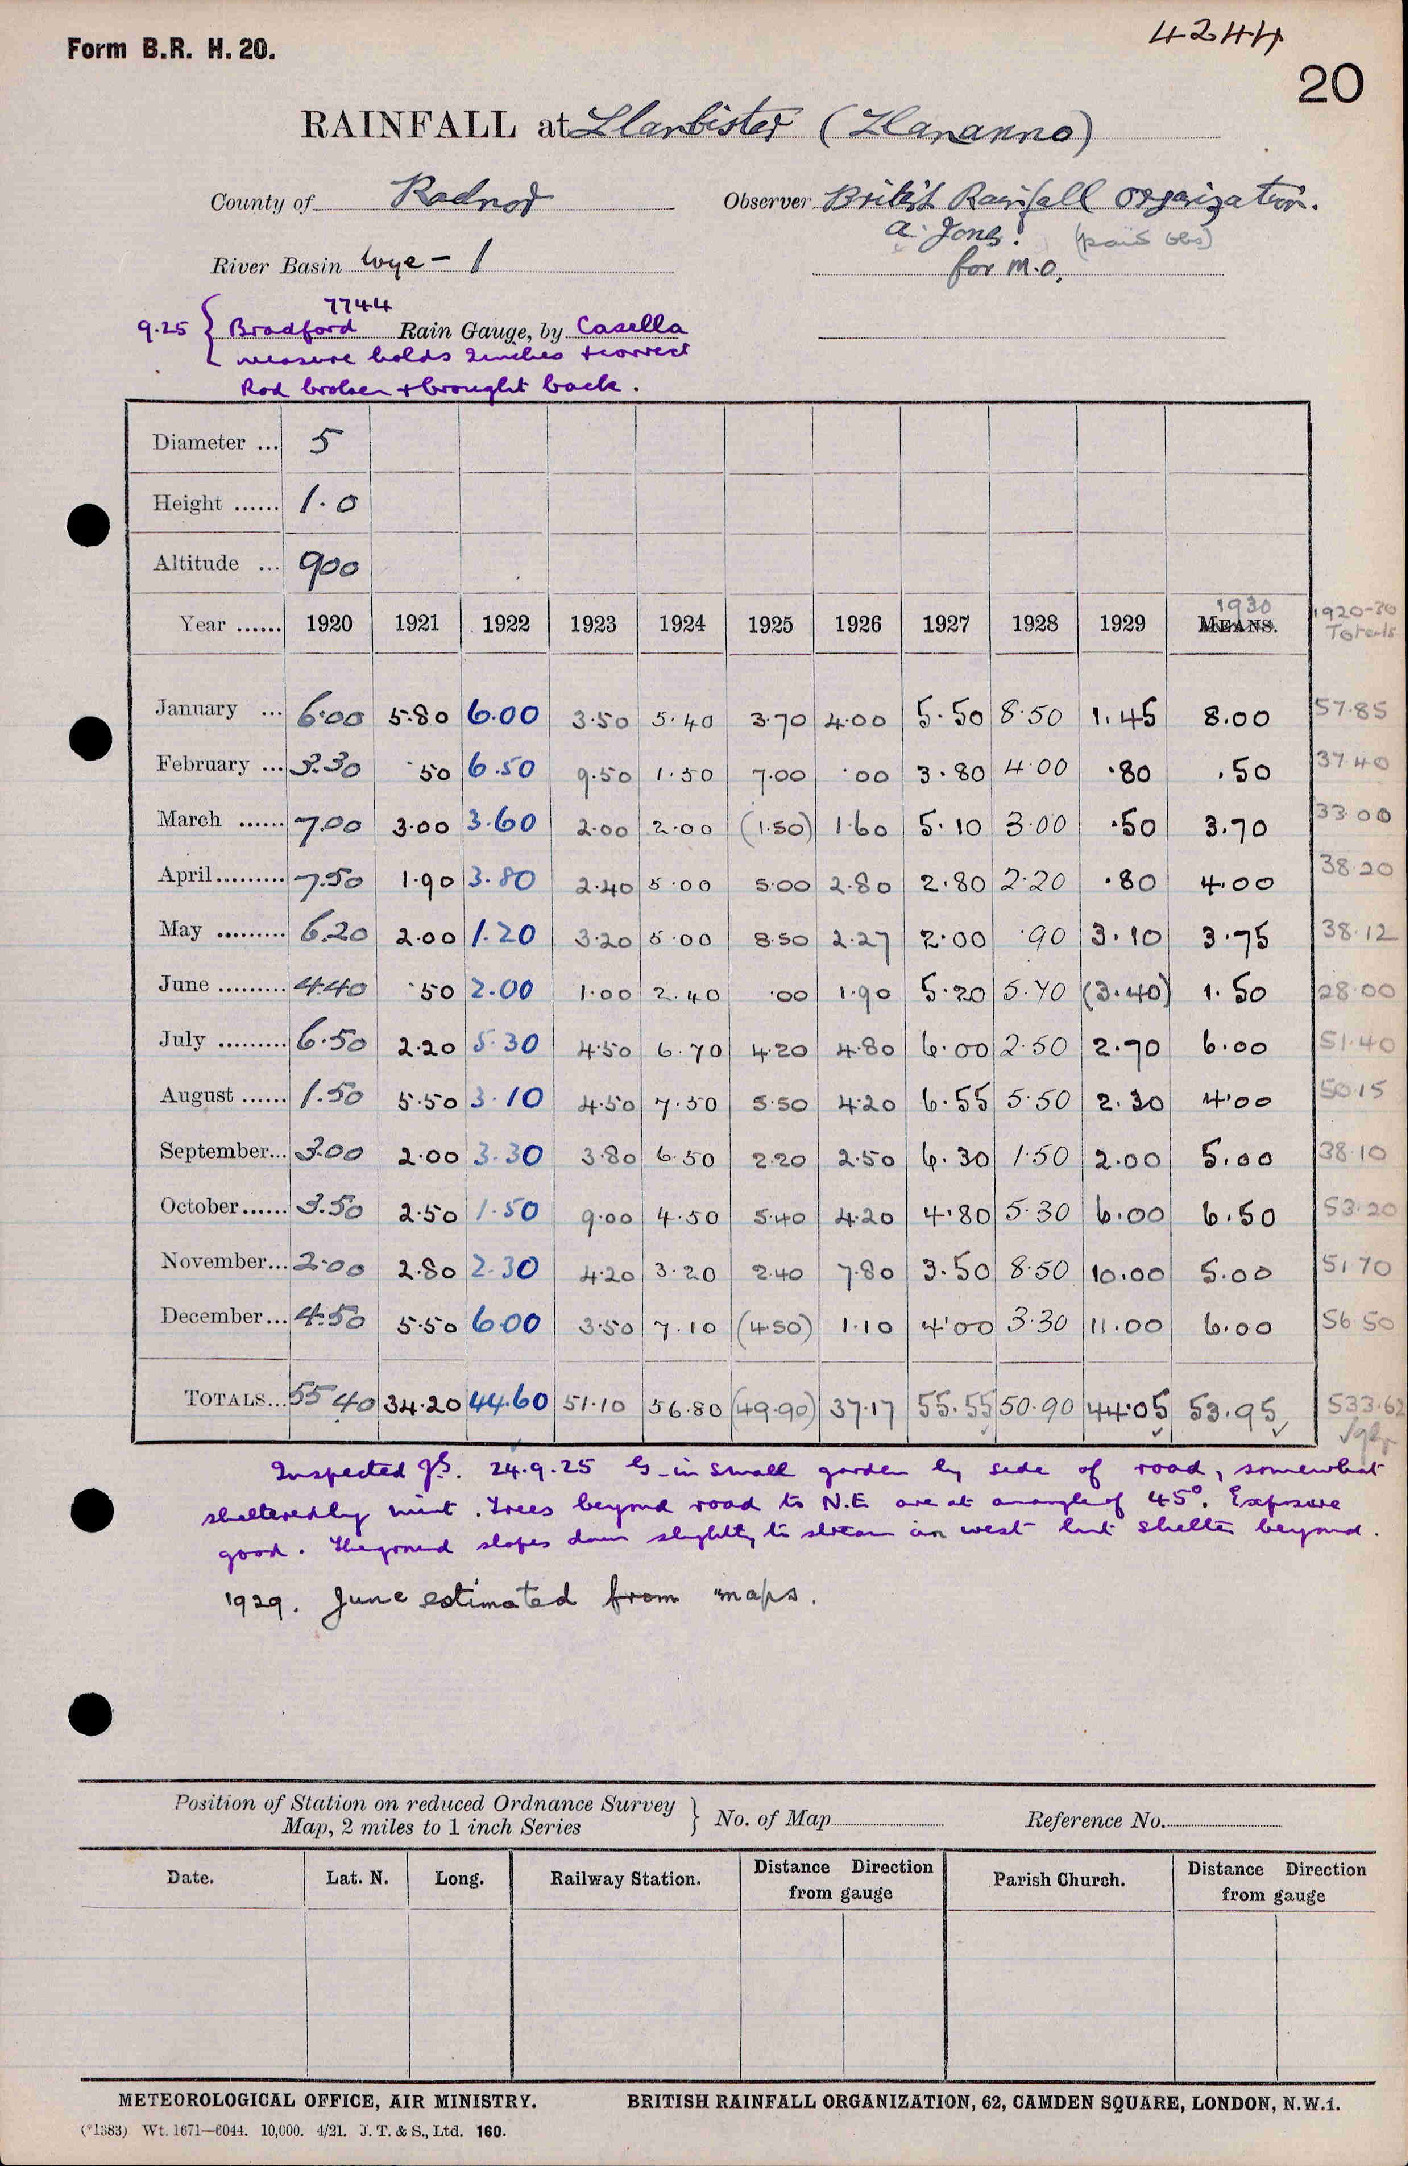 Form B.R. H. 20.
4244
20
RAINFALL at Llanbister (Llananno)
County of Radnor
Observer British Rainfall Organization.
A. Jones. (paid obs)
River Basin Wye - 1
for M.O.
7744
9.25 { Bradford Rain Gauge, by Casella
measure holds 2 inches & correct
Rod broken & brought back.
Diameter ... 5
Height ...... 1.0
Altitude ... 900
Year ...... 1920 1921 1922 1923 1924 1925 1926 1927 1928 1929 MEANS. 1930 1920-30 Totals
January ... 6.00 5.80 6.00 3.50 5.40 3.70 4.00 5.50 8.50 1.45 8.00 57.85
February ... 3.30 .50 6.50 9.50 1.50 7.00 .00 3.80 4.00 .80 .50 37.40
March ...... 7.00 3.00 3.60 2.00 2.00 (1.50) 1.60 5.10 3.00 .50 3.70 33.00
April ......... 7.50 1.90 3.80 2.40 5.00 5.00 2.80 2.80 2.20 .80 4.00 38.20
May ......... 6.20 2.00 1.20 3.20 5.00 8.50 2.27 2.00 .90 3.10 3.75 38.12
June ......... 4.40 .50 2.00 1.00 2.40 .00 1.90 5.20 5.70 (3.40) 1.50 28.00
July ......... 6.50 2.20 5.30 4.50 6.70 4.20 4.80 6.00 2.50 2.70 6.00 51.40
August ...... 1.50 5.50 3.10 4.50 7.50 5.50 4.20 6.55 5.50 2.30 4.00 50.15
September... 3.00 2.00 3.30 3.80 6.50 2.20 2.50 6.30 1.50 2.00 5.00 38.10
October...... 3.50 2.50 1.50 9.00 4.50 5.40 4.20 4.80 5.30 6.00 6.50 53.20
November... 2.00 2.80 2.30 4.20 3.20 2.40 7.80 3.50 8.50 10.00 5.00 51.70
December... 4.50 5.50 6.00 3.50 7.10 (4.50) 1.10 4.00 3.30 11.00 6.00 56.50
TOTALS... 55.40 34.20 44.60 51.10 56.80 (49.90) 37.17 55.55 50.90 44.05 53.95 533.62
Inspected 24.9.25 G. in small garden by side of road, somewhat
shelteredly mint. Trees beyond road to N.E. are at an angle of 45°. Exposure
good. The ground slopes down slightly to stream on west but shelter beyond.
1929. June estimated from maps.
Position of Station on reduced Ordnance Survey
Map, 2 miles to 1 inch Series } No. of Map Reference No.
Date. Lat. N. Long. Railway Station. Distance Direction from gauge Parish Church. Distance Direction from gauge
METEOROLOGICAL OFFICE, AIR MINISTRY. BRITISH RAINFALL ORGANIZATION, 62, CAMDEN SQUARE, LONDON, N.W.1.
(*1383) Wt. 1671—6044. 10,000. 4/21. J. T. & S., Ltd. 160.